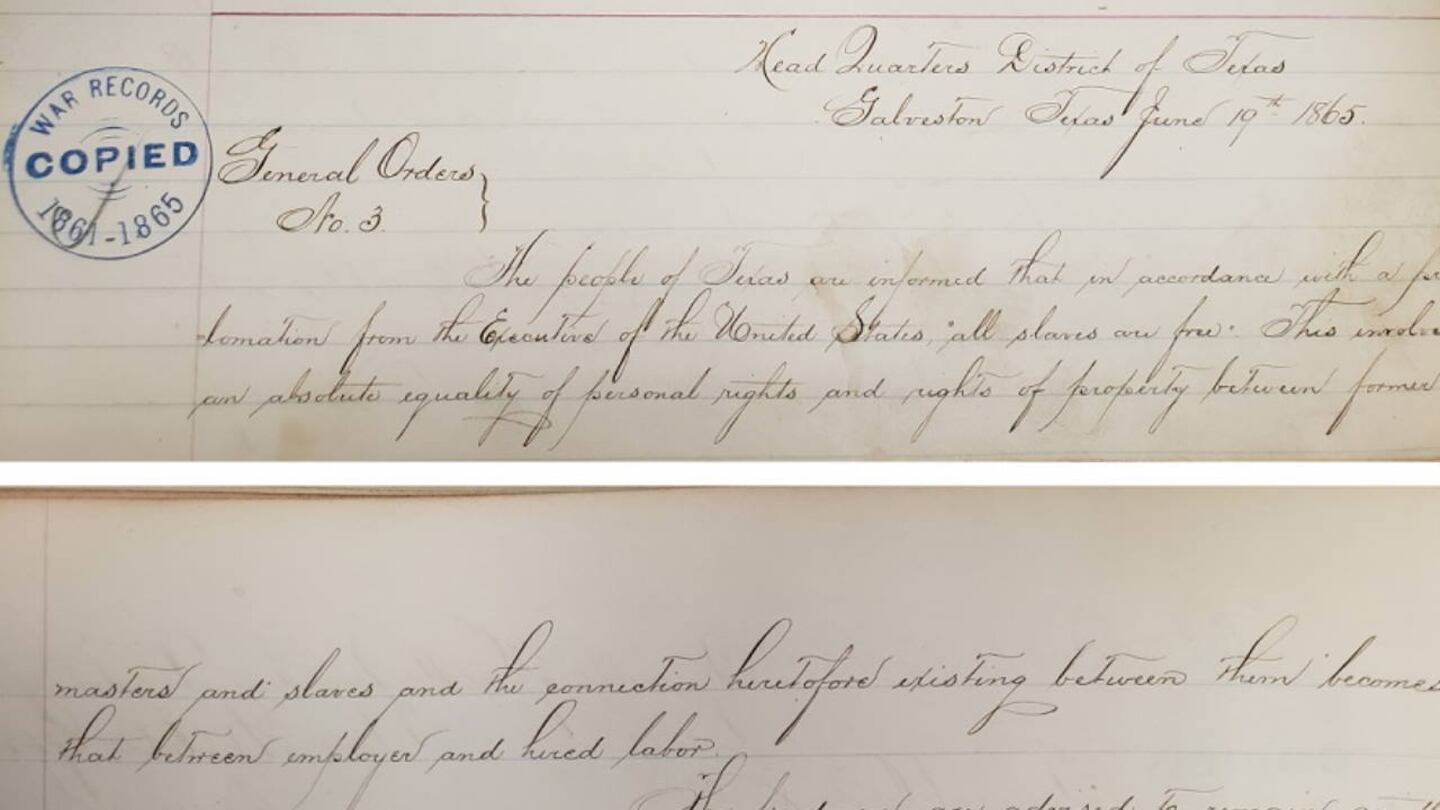 Head Quarters District of Texas
Galveston Texas June 19th 1865.
WAR RECORDS
COPIED
1861-1865
General Orders
No. 3.
The people of Texas are informed that in accordance with a
lamation from the Executive of the United States, "all slaves are free." This involve
an absolute equality of personal rights and rights of property between former
masters and slaves and the connection heretofore existing between them becomes
that between employer and hired labor.
are advised to remain